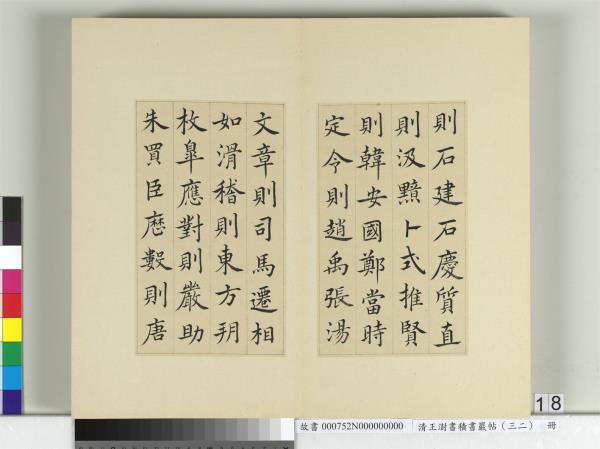 則石建石慶質直
則汲黯卜式推賢
則韓安國鄭當時
定令則趙禹張湯
文章則司馬遷相
如滑稽則東方朔
枚皋應對則嚴助
朱買臣歷數則唐
18
故書 000752N000000000 清王澍書積書巖帖（三二） 冊